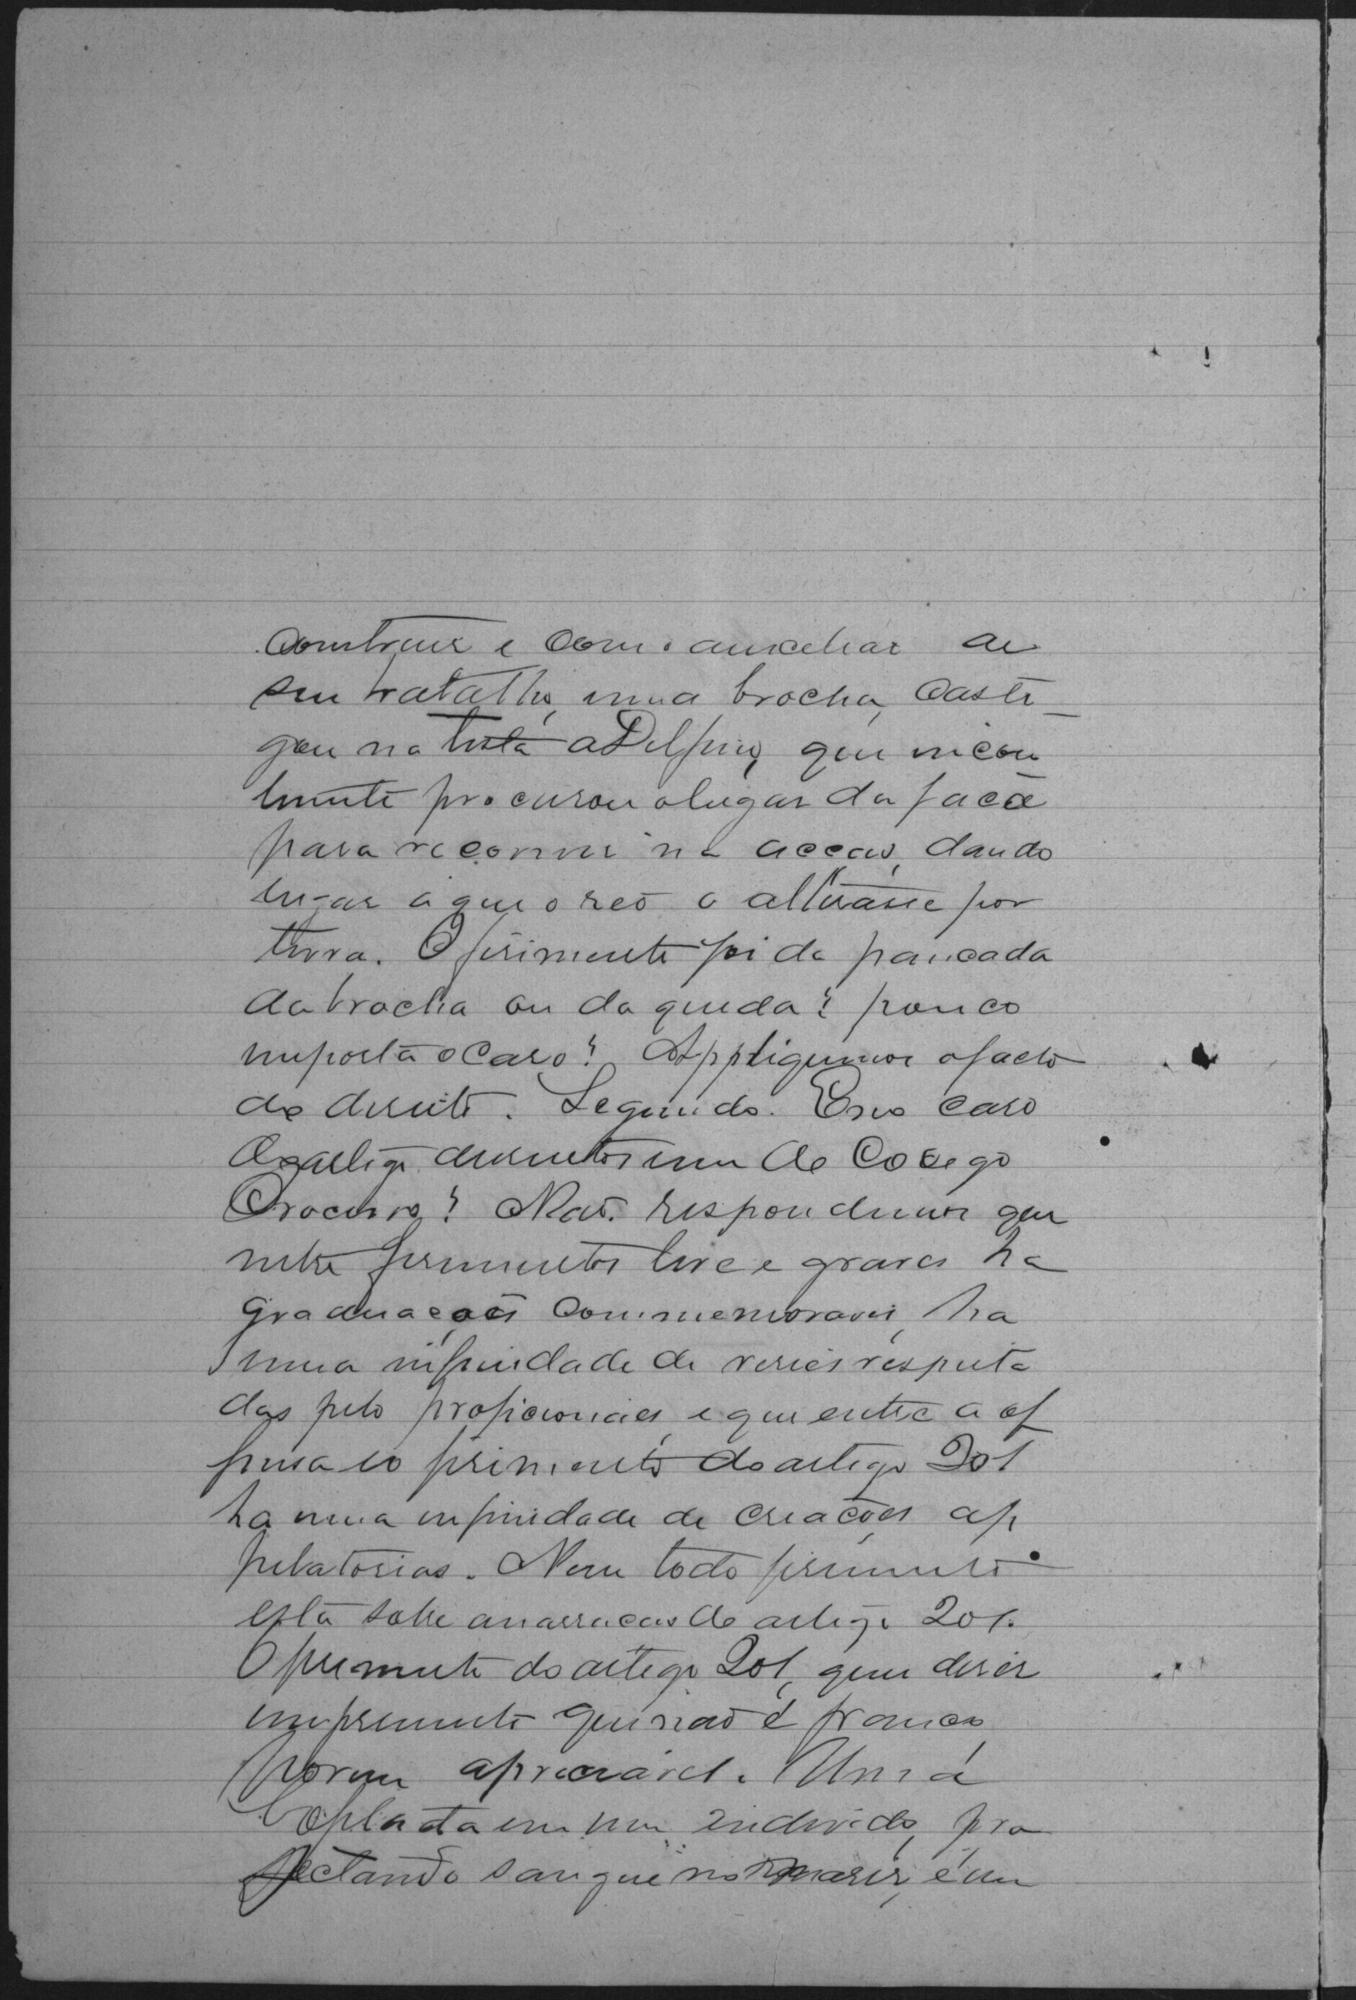 construir e com o auxcliar de
seu trabalho, uma brocha, casti-
gou na testa a Delfino, que incon
tmente procurou o lugar da faca
para recorrer na accão, dando
lugar a que o reo o altirasse por
terra. O firimento foi da pancada
da brocha ou da queda? pouco
importa o caso? Appliquemos o facto
do direito. Segundo. Esse caso
O artigo duzentos e um do Codego
Processo? Não. respondemos que
entre ferimentos leve e graves ha
graduações commemoraveis, ha
uma infinidade de
das pelo proficionaes, e que entre a of
fensa e o firimento do artigo 201
ha uma infinidade de creações ap
pelatorias. Nem todo firimento
está sobre a narracao do artigo 201.
O firimento do artigo 201, quer diser
um firimento que não é franco,
porem apreciavel. Uma
bofetada em um individo, pro
jectando sangue no nariz, é um